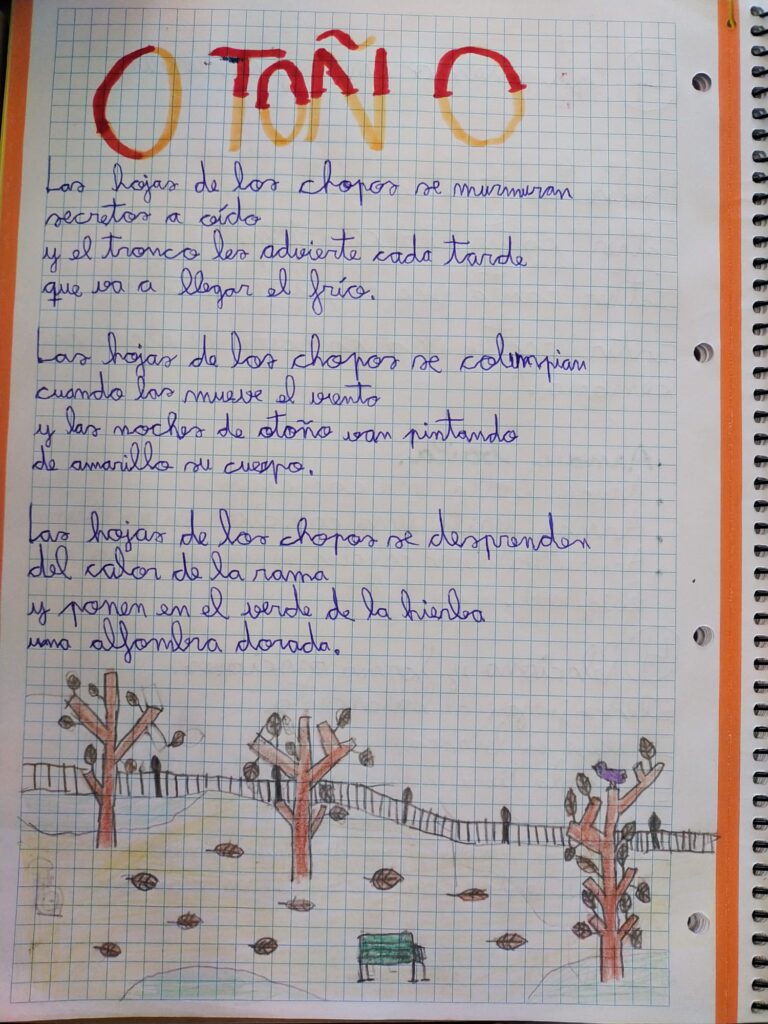 OTOÑO
Las hojas de los chopos se murmuran
secretos a oído
y el tronco les advierte cada tarde
que va a llegar el frío.
Las hojas de los chopos se columpian
cuando las mueve el viento
y las noches de otoño van pintando
de amarillo su cuerpo.
Las hojas de los chopos se desprenden
del calor de la rama
y ponen en el verde de la hierba
una alfombra dorada.